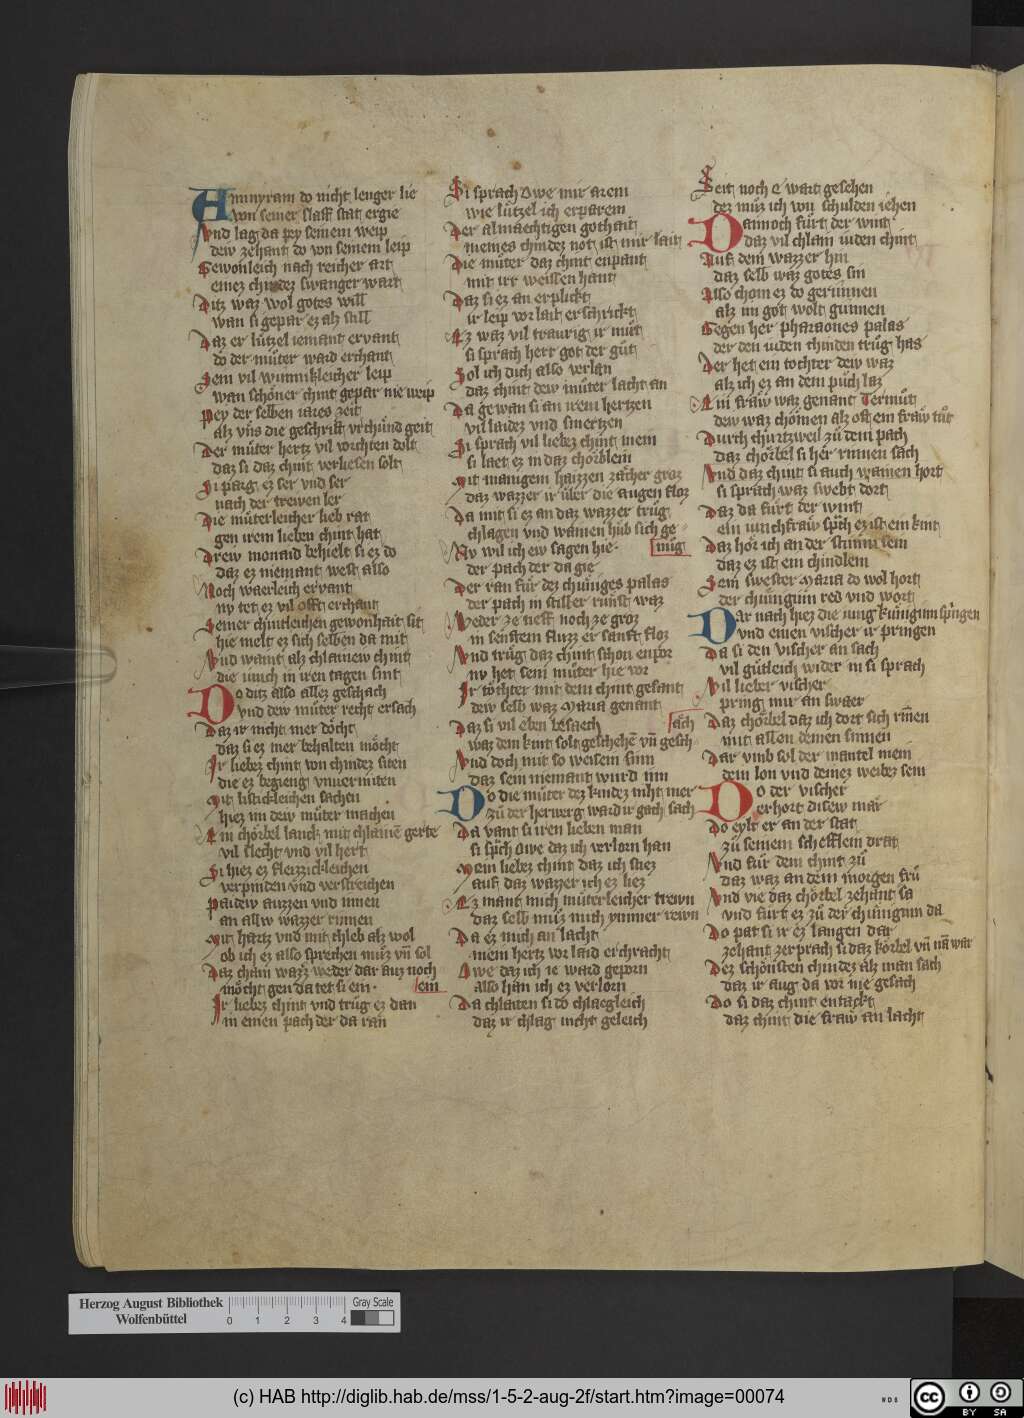 Amnyram do nicht lenger lie
von seiner slaff stat ergie
Vnd lag da pey seinem weip
dew zehant do von seinem leip
Gewonleich nach reicher art
einez chindez swanger wart
Ditz waz wol gotes will
wan si gepar ez alz still
Daz er lützel iemant ervant
do der müter ward erchant
Sein vil wunnikleicher leip
wan schöner chint gepar nie weip
Pey der selben iares zeit
alz vns die geschrift vrchünd geit
Der müter hertz vil vorchten dolt
daz si daz chint verliesen solt
Si parg ez ser vnd ser
nach der trewen ler
Die müterleicher lieb rat
gen irem lieben chint hat
Drew monaid behielt si ez do
daz ez niemant west also
Noch waerleich ervant
ny tet ez vil offt erchant
Seiner chintleichen gewonhait sit
hie melt ez sich selben da mit
Vnd waint alz chlainew chint
die noch in iren tagen sint
Do ditz allso allez geschach
vnd dew müter recht ersach
Daz ir nicht mer döcht
daz si ez mer behalten möcht
Ir liebez chint von chindez siten
die ez begieng vnuermiten
Mit listichleichen sachen
hiez im dew müter machen
Ein chörbel lanck mit chlaine gerte
vil slecht vnd vil hert
Si hiez ez fleizzichleichen
verpinden vnd verstreichen
Paidew auzzen vnd innen
an allw wazzer rinnen
Mit hartz vnd mit chleb alz wol
ob ich ez allso sprechen müz vn sol
Daz chain wazz weder dar auz noch
möcht gen da tet si ein. ein
Ir liebez chint vnd trüg ez dan
in einen pach der da ran
Si sprach Owe mir arem
wie lützel ich erparem
Der almaechtigen gothait
meines chindez not ist mir lait
Die müter daz chint enpant
mit irr weissen hant
Daz si ez an erplickt
ir leip vor lait erschrickt
Ez waz vil traurig ir müt
si sprach herr got der güt
Sol ich dich also verlan
daz chint dew müter lacht an
Da gewan si an irem hertzen
vil laidez vnd smertzen
Si sprach vil liebez chint mein
si laet ez in daz chörblein
Mit manigem haizzen zächer groz
daz wazzer ir über die augen floz
Da mit si ez an daz wazzer trüg
chlagen vnd wainen hüb sich ge
Ny wil ich ew sagen hie nüg
der pach der da gie
Der ran für dez chüniges palas
der pach in stiller runst waz
Weder ze tieff noch ze groz
in senftem fluzz er sanft floz
Vnd trüg daz chint schon enpor
ny het sein müter hie vor
Ir töchter mit dem chint gesant
dew selb waz Maria genant
Daz si vil eben besaech äch
waz dem kint solt geschehe vn gesch
Vnd doch mit so weisem sinn
daz sein niemant wurd inn
Do die müter dez kindez niht mer
zü der herwerg ward ir gach sach
Da vant si iren lieben man
si sprch Owe daz ich verlorn han
Mein liebez chint daz ich stiez
auf daz wazzer ich ez liez
Ez mant mich müterleicher trewn
daz selb müz mich ymmer rewn
Da ez mich an lacht
mein hertz vor laid erchracht
Owe daz ich ie ward geporn
also han ich ez verlorn
Da chlaiten si do chlaegleich
daz ir chlag nicht geleich
Seit noch E wart gesehen
dez müz ich von schulden iehen
Dannoch fürt der wint
daz vil chlain iuden chint
Auf dem wazzer hin
daz selb waz gotes sin
Allso chom ez do gerunnen
alz im got wolt gunnen
Gegen her Pharaones palas
der den iuden chinden trüg has
Der het ein tochter dew waz
alz ich ez an dem püch laz
Ein fraw waz genant Termüt
dew waz chömen alz oft ein fraw tüt
Durch churtzweil zü dem pach
daz chörbel si her rinnen sach
Vnd daz chint si auch wainen hort
si sprach waz swebt dort
Daz da fürt der wint
ein iunchfraw sprch ez ist ein kint
Daz hör ich an der stimm sein
daz ez ist ein chindlein
Sein swester Maria do wol hort
der chünigin red vnd wort
Dar nach hiez die iung kunigin springen
vnd einen vischer ir pringen
Da si den vischer an sach
vil gütleich wider in si sprach
Vil lieber vischer
pring mir an swaer
Daz chörbel daz ich dort sich rinen
mit allen deinen sinnen
Dar vmb sol der mantel mein
dein lon vnd deinez weibez sein
Do der vischer
erhort disew mär
Do eylt er an der stat
zü seinem schefflein drat
Vnd für dem chint zü
daz waz an dem morgen frü
Vnd vie daz chörbel zehant sa
vnd fürt ez zü der chünigin da
Do pat si ir ez langen dar
zehant zerprach si daz körbel vn na war
Dez schönsten chindez alz man sach
daz ir aug da vor nie gesach
Do si daz chint entackt
daz chint die fraw an lacht
Herzog August Bibliothek
Wolfenbüttel
0 1 2 3 4
Gray Scale
(c) HAB http://diglib.hab.de/mss/1-5-2-aug-2f/start.htm?image=00074
WDB
cc BY SA